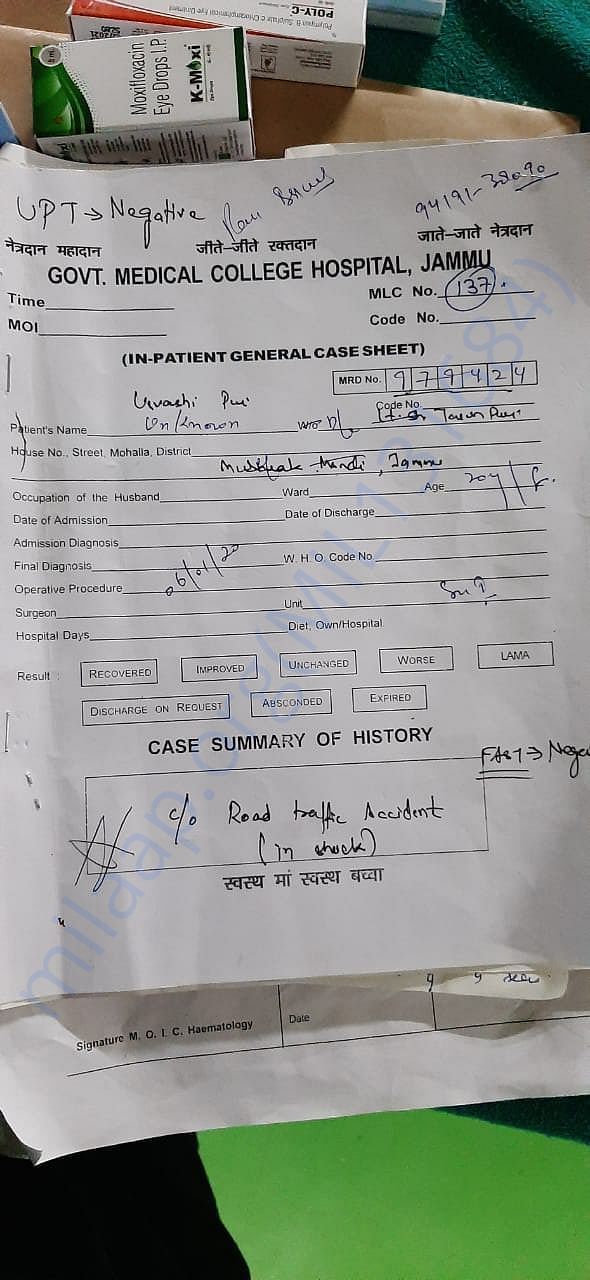 Polymyxin B Sulphate e Chloramphenicol Eye Ointment
POLY-C
Moxifloxacin
Eye Drops I.P.
K-Moxi
UPT → Negative
94191-
नेत्रदान महादान
जीते–जीते रक्तदान
जाते–जाते नेत्रदान
GOVT. MEDICAL COLLEGE HOSPITAL, JAMMU
Time
MLC No. 137
MOI
Code No.
(IN-PATIENT GENERAL CASE SHEET)
MRD No. 979424
Urvashi Puri
Code No.
Patient's Name Unknown W/o D/o Puri
House No., Street, Mohalla, District
Mandi, Jammu
Occupation of the Husband Ward Age 20y/F.
Date of Admission Date of Discharge
Admission Diagnosis
Final Diagnosis 06/01/20 W. H. O. Code No.
Operative Procedure
Surgeon Unit
Hospital Days Diet, Own/Hospital
Result : RECOVERED IMPROVED UNCHANGED WORSE LAMA
DISCHARGE ON REQUEST ABSCONDED EXPIRED
CASE SUMMARY OF HISTORY
FAST → Nega
c/o Road traffic Accident
(in shock)
स्वस्थ मां स्वस्थ बच्चा
Signature M. O. I. C. Haematology
Date
milaap.org